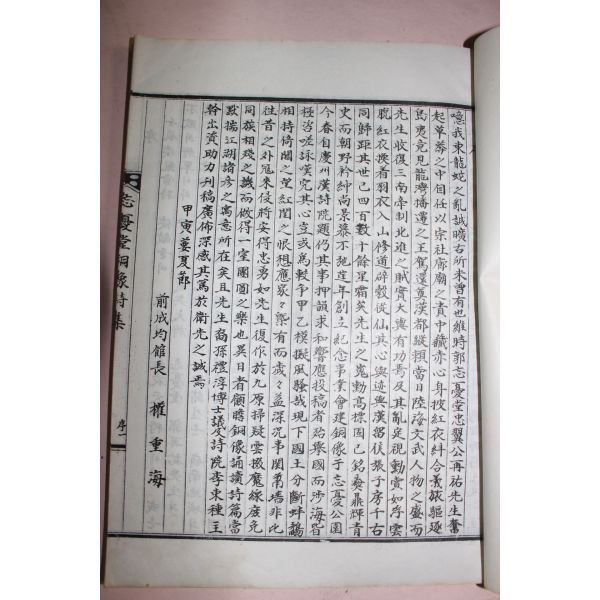 噫我東龍蛇之亂誠曠古所未曾有也維時郭忘憂堂忠翼公再祐先生奮
起草莽之中自任以宗社廊廟之責中藏赤心身披紅衣糾合義旅驅逐
島夷竟見龍灣播遷之王駕還奠漢都縱類當日陸海文武人物之盛而
先生收復三南牽制北進之賊實大與有功焉及其亂定視勳賞如浮雲
脫紅衣換着羽衣入山修道辟穀從仙其心與迹與漢留侯張子房千古
同歸距其世已四百數十餘星霜矣先生之嵬勳高標固已銘彝鼎輝青
史而朝野衿紳尚景慕不弛這年創立紀念事業會建銅像于忘憂公園
今春自慶州漢詩院題仍其事押韻求和響應投稿者殆擧國而涉海皆
極咨嗟詠漢究其心豈或爲較爭甲乙模擬風騷哉現下國土分斷蚌鷸
相持倚閭之望紅閨之恨想應家々槩有而歲々益深沉事鬩墻非比
往昔之外冠來侵將安得忠勇如先生復作於九原掃疑雲撥魔線廣免
同族相殘之譏而做得一室團圓之樂也異日者顧瞻銅像誦讀詩篇當
默揣江湖諸彦之寓意所在矣且先生裔孫禮淳博士議及詩院李東種主
幹出資助力刊稿廣佈深感其篤於衛先之誠焉
甲寅蕤夏節
前成均館長 權重海
忘憂堂銅像詩集
序一